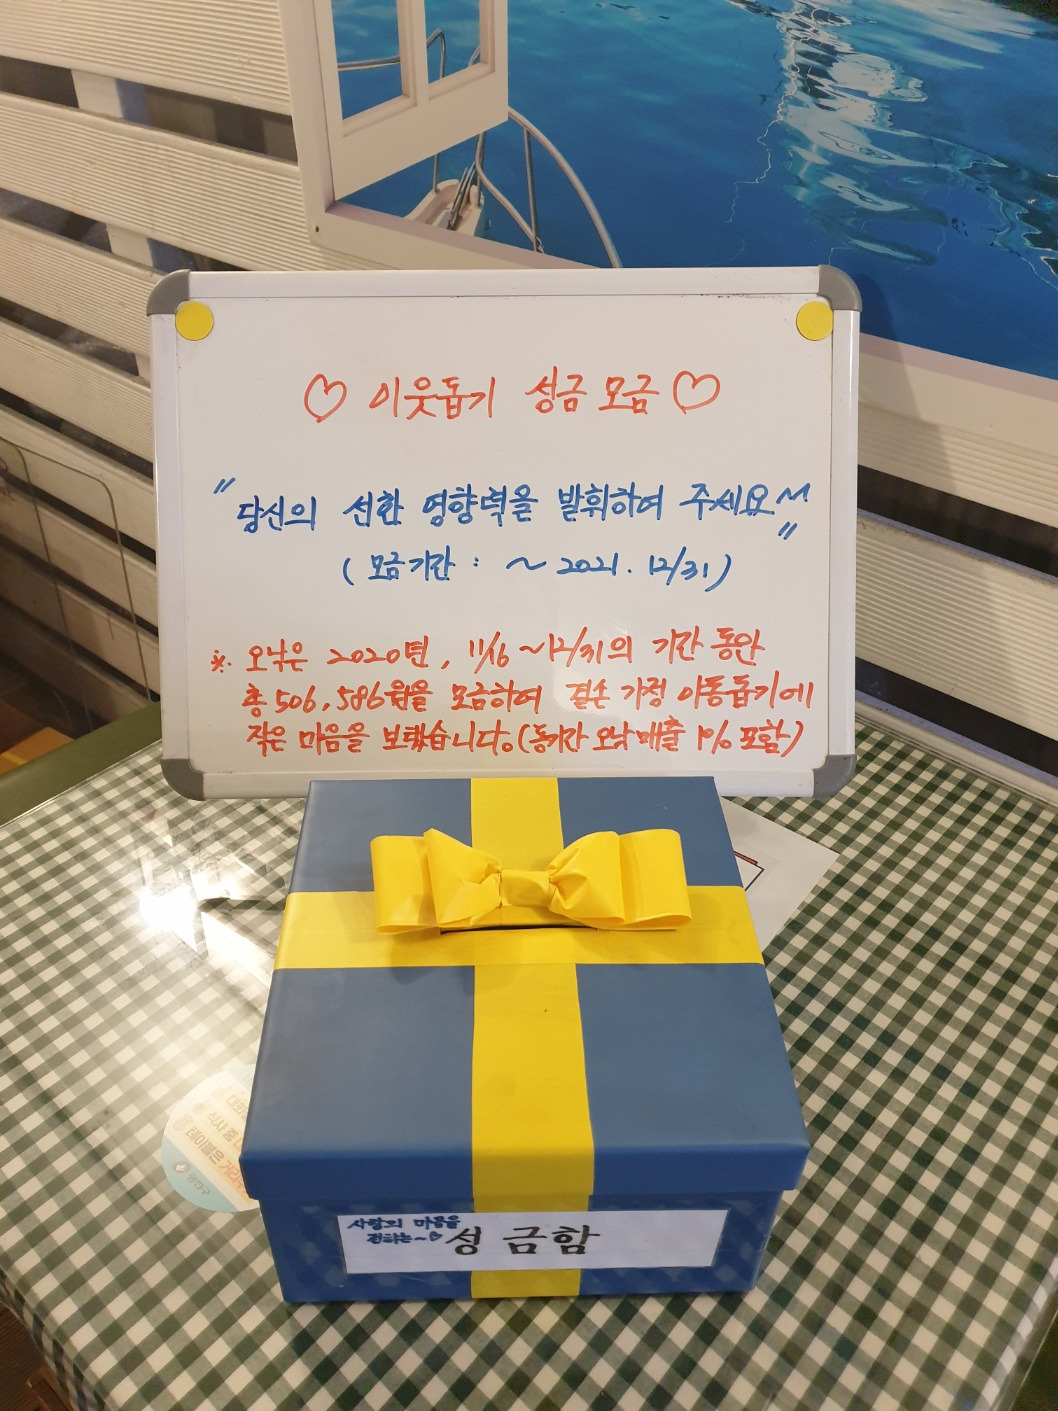 ♡ 이웃돕기 성금 모금 ♡
"당신의 선한 영향력을 발휘하여 주세요~"
( 모금기간 : ~ 2021. 12/31 )
※. 오낙은 2020년, 11/16 ~12/31의 기간 동안
총 506,586원을 모금하여 결손 가정 아동돕기에
작은 마음을 보탰습니다.(동기간 오낙매출 1% 포함)
식사 중
테이블은 거리
사랑의 마음을
전하는~♡ 성금함